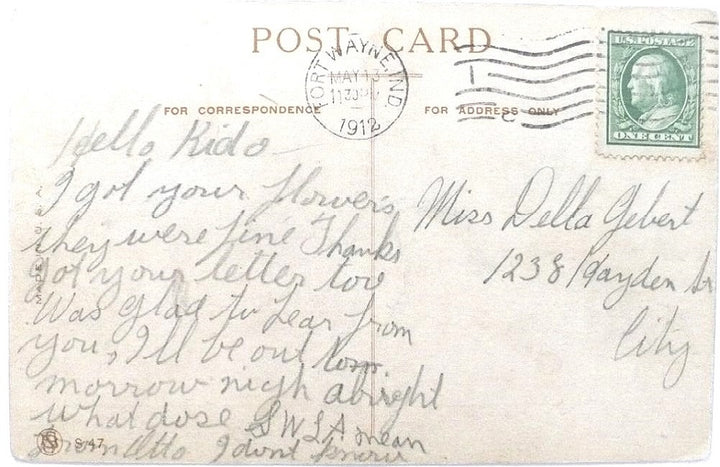 POST CARD
FORT WAYNE, IND
MAY 13
1130PM
1912
U.S. POSTAGE
ONE CENT
FOR CORRESPONDENCE
FOR ADDRESS ONLY
Hello Kido
I got your flowers
they were fine Thanks
got your letter too
Was glad to hear from
you, I'll be out tom.
morrow nigh abright
what dose SWSA mean
from Otto I dont know
Miss Della Gebert
1238 Hayden St
City
MADE IN U.S.A.
S/47